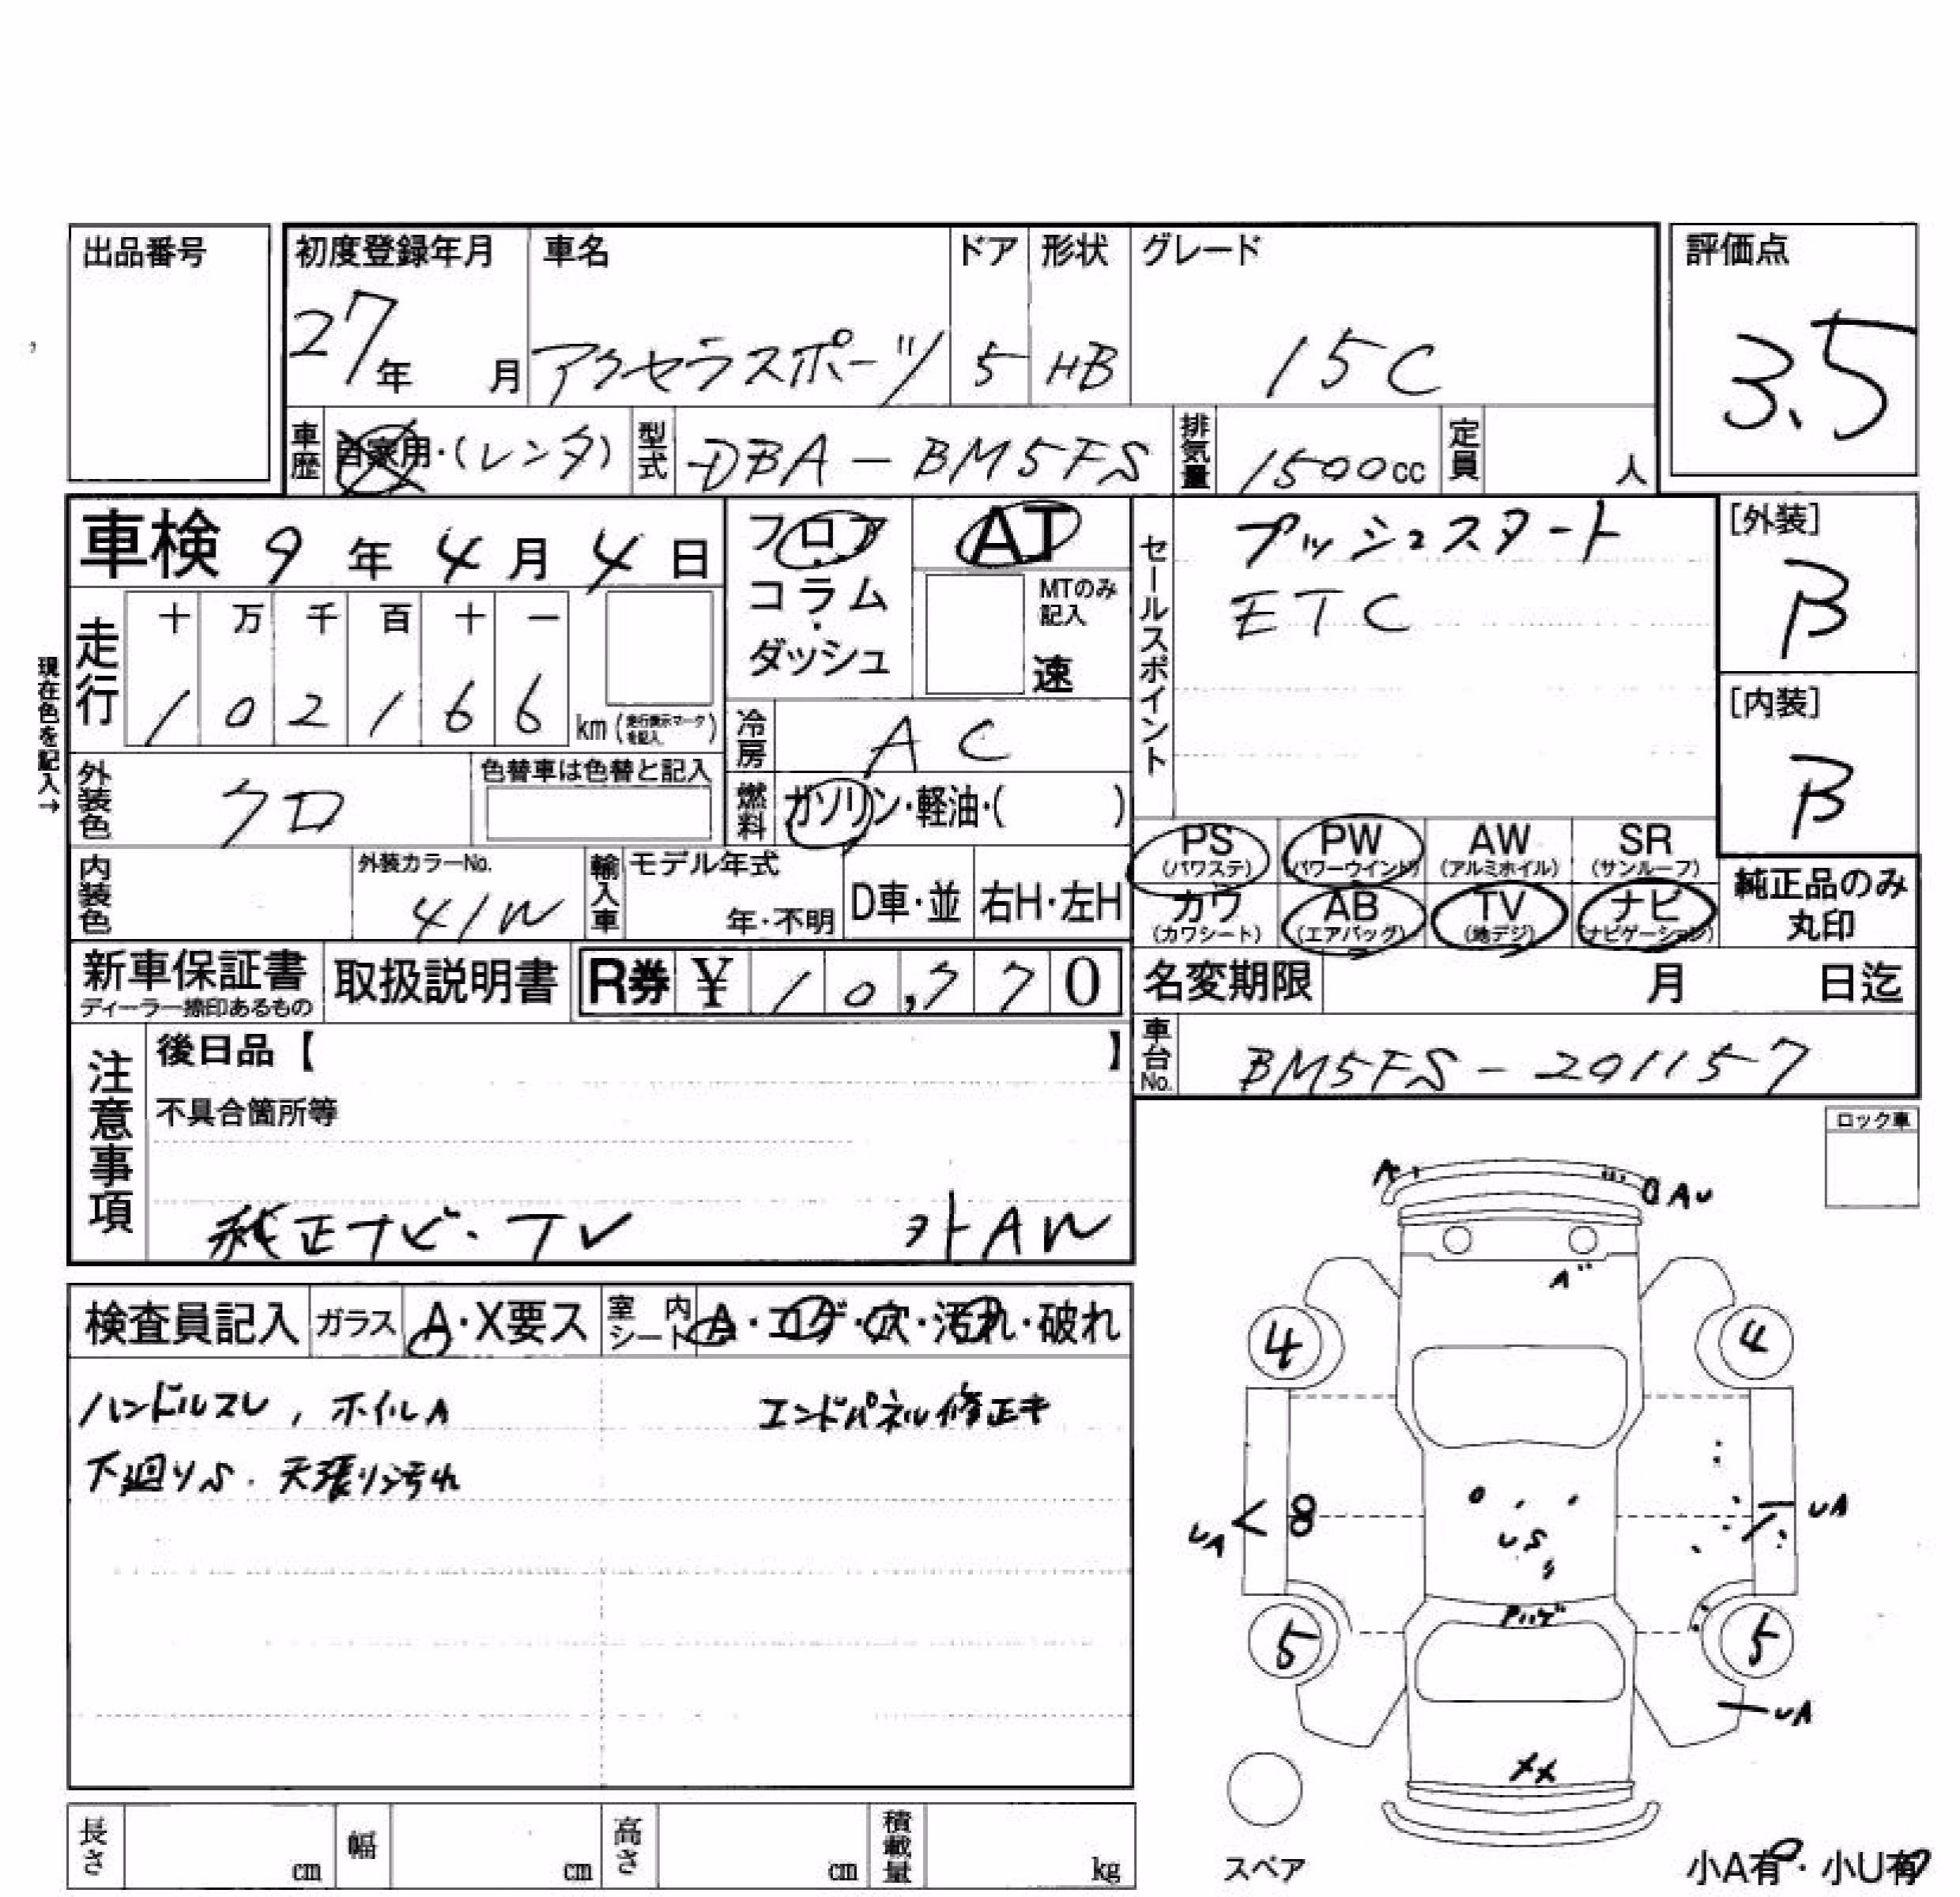 出品番号
初度登録年月 車名 ドア 形状 グレード 評価点
27年 月 アクセラスポーツ 5 HB 15C 3.5
車歴 自家用・(レンタ) 型式 DBA-BM5FS 排気量 1500cc 定員 人
車検 9年4月4日
フロア・コラム・ダッシュ
AT
MTのみ記入
速
セールスポイント
プッシュスタート
ETC
[外装]
B
[内装]
B
現在色を記入→
走行 十 万 千 百 十 一
1 0 2 1 6 6 km (走行表示マークを記入)
冷房 AC
外装色 クロ 色替車は色替と記入
燃料 ガソリン・軽油・( )
PS (パワステ) PW (パワーウインド) AW (アルミホイル) SR (サンルーフ)
カワ (カワシート) AB (エアバッグ) TV (地デジ) ナビ (ナビゲーション)
純正品のみ丸印
内装色 外装カラーNo. 41W 輸入車 モデル年式 年・不明 D車・並 右H・左H
新車保証書 ディーラー捺印あるもの 取扱説明書 R券 ¥ 10,770
名変期限 月 日迄
車台No. BM5FS-201157
注意事項
後日品【 】
不具合箇所等
純正ナビ・TV 外AW
ロック車
検査員記入 ガラス A・X要ス 室内シート A・コゲ・穴・汚れ・破れ
ハンドルスレ, ホイルA エンドパネル修正キ
下廻りS. 天張り汚れ
A
AU
A"
4 4
UA 8 UA
US
Pハゲ
5 5
UA
XX
スペア
小A有・小U有
長さ cm 幅 cm 高さ cm 積載量 kg